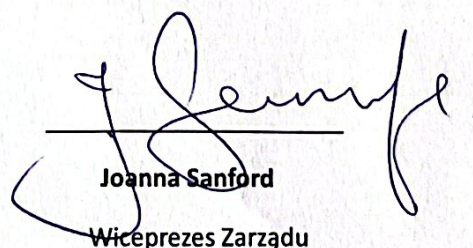 Joanna Sanford
Wiceprezes Zarządu